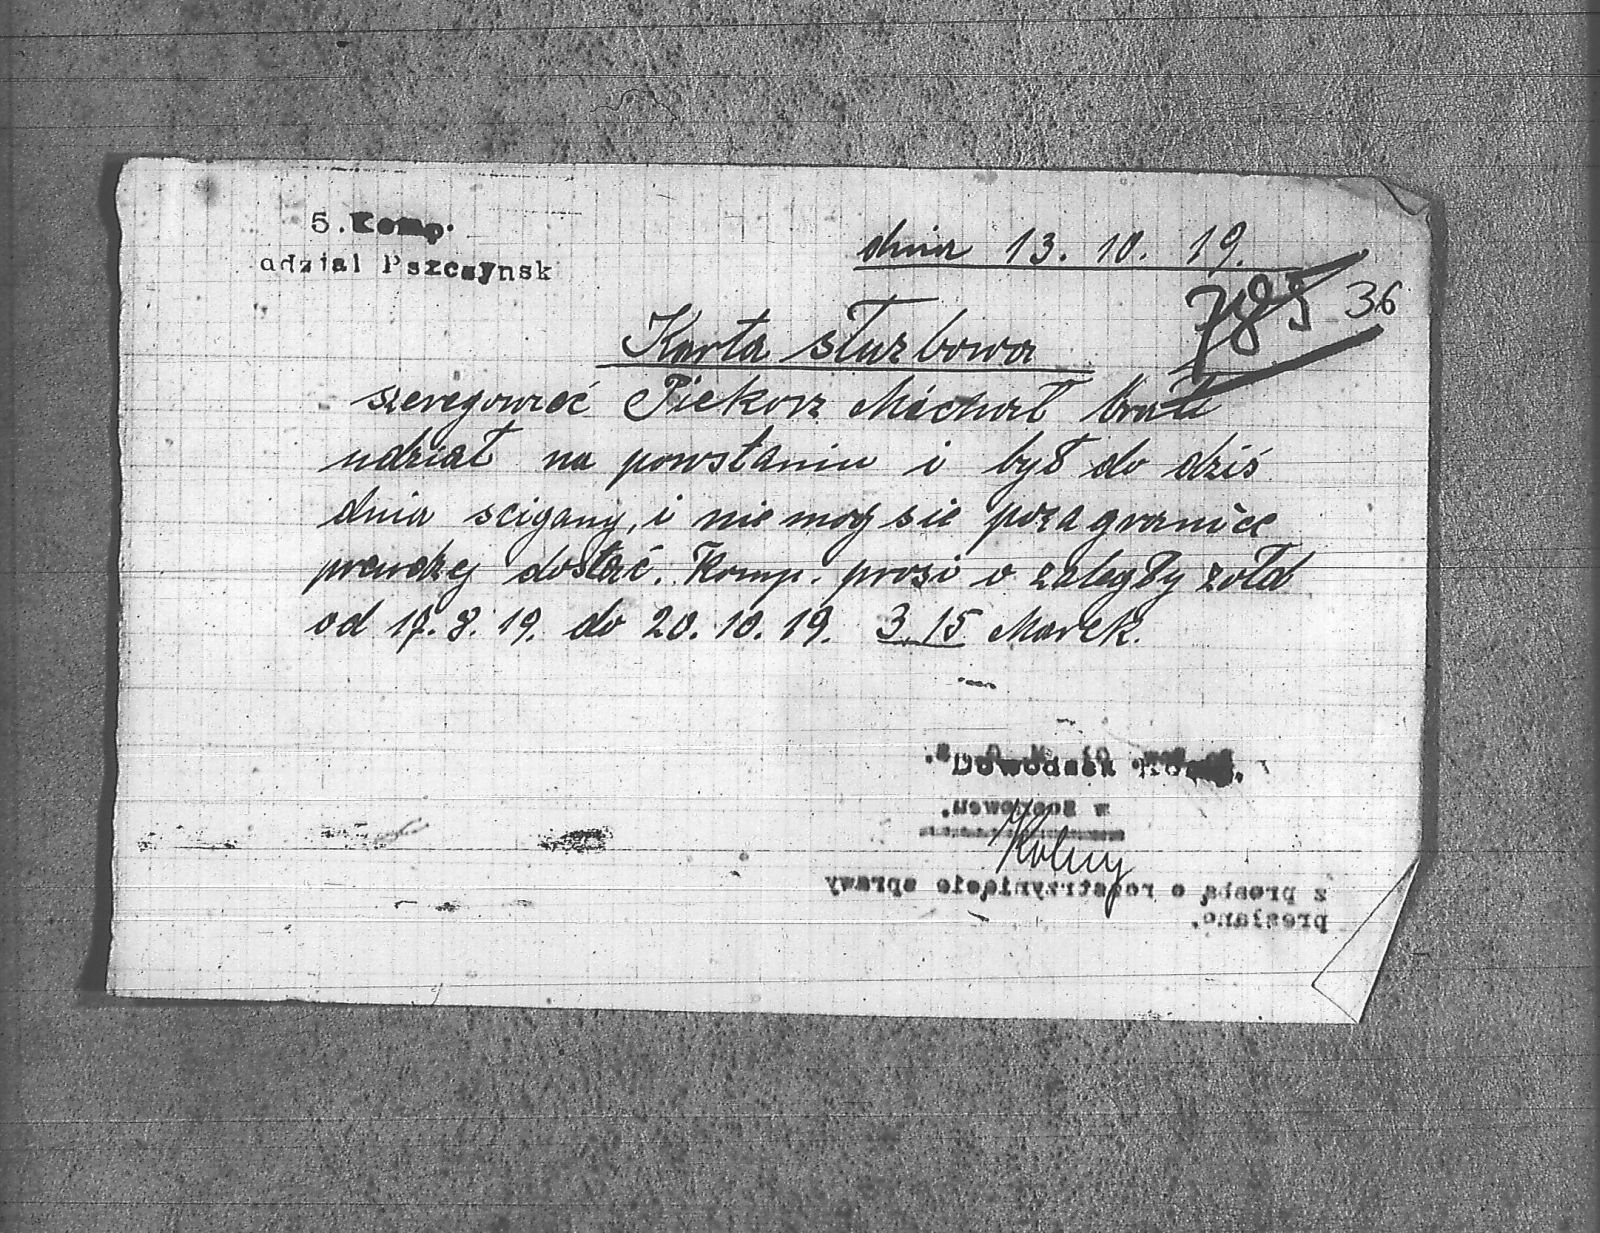 5. Komp.
odzial Pszczynsk
dnia 13. 10. 19.
785 36
Karta służbowa
szeregowieć Piekorz Michał brał
udział na powstaniu i był do dziś
dnia scigany, i nie mog sie pozagranice
prendzej dostać. Komp. prosi o zaległy zołd
od 17. 8. 19. do 20. 10. 19. 3,15 Marek.
w Sosnowcu.
Kolny
z prosbą o rozstrzynięcie sprawy
presłano.